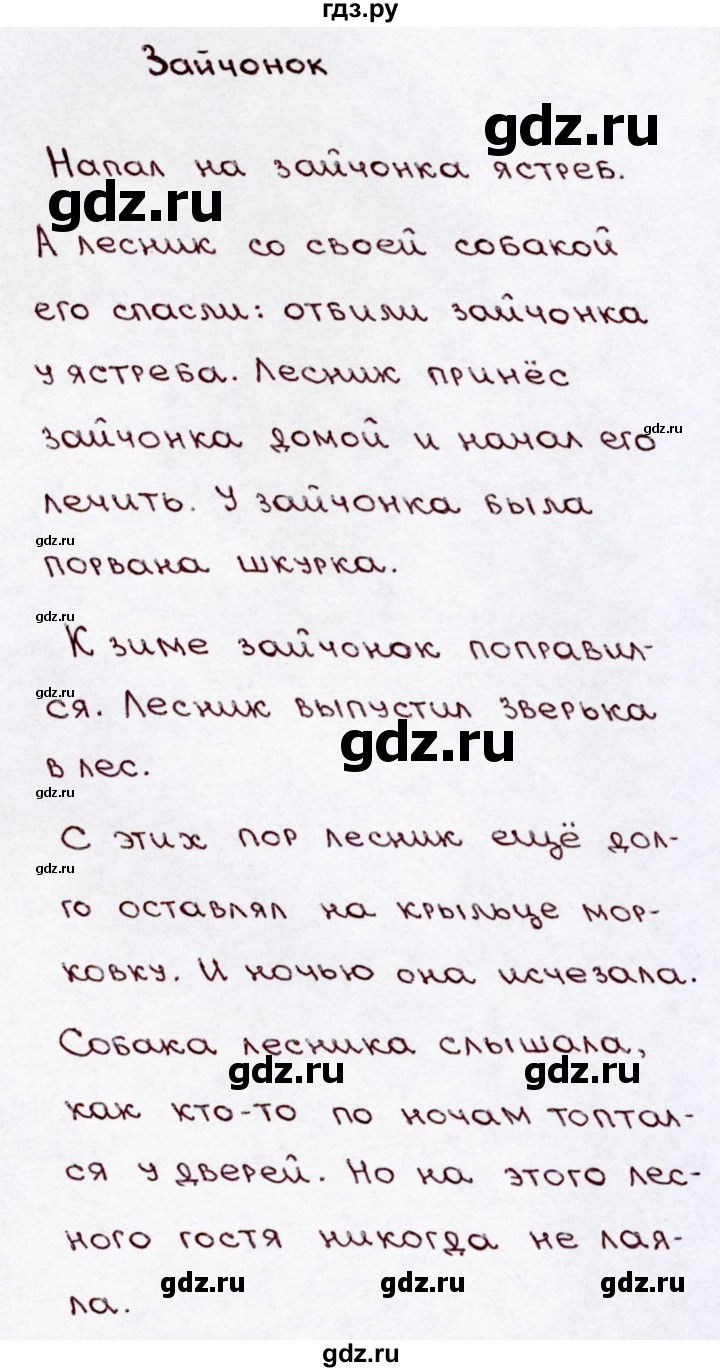 гдз.ру
Зайчонок
gdz.ru
Напал на зайчонка ястреб.
gdz.ru
А лесник со своей собакой
его спасли: отбили зайчонка
у ястреба. Лесник принёс
gdz.ru
зайчонка домой и начал его
лечить. У зайчонка была
gdz.ru
порвана шкурка.
gdz.ru
К зиме зайчонок поправил-
gdz.ru
ся. Лесник выпустил зверька
gdz.ru
в лес.
gdz.ru
С этих пор лесник ещё дол-
gdz.ru
го оставлял на крыльце мор-
ковку. И ночью она исчезала.
Собака лесника слышала,
gdz.ru gdz.ru
как кто-то по ночам топтал-
ся у дверей. Но на этого лес-
ного гостя никогда не лая-
gdz.ru gdz.ru gdz.ru
ла.
gdz.ru